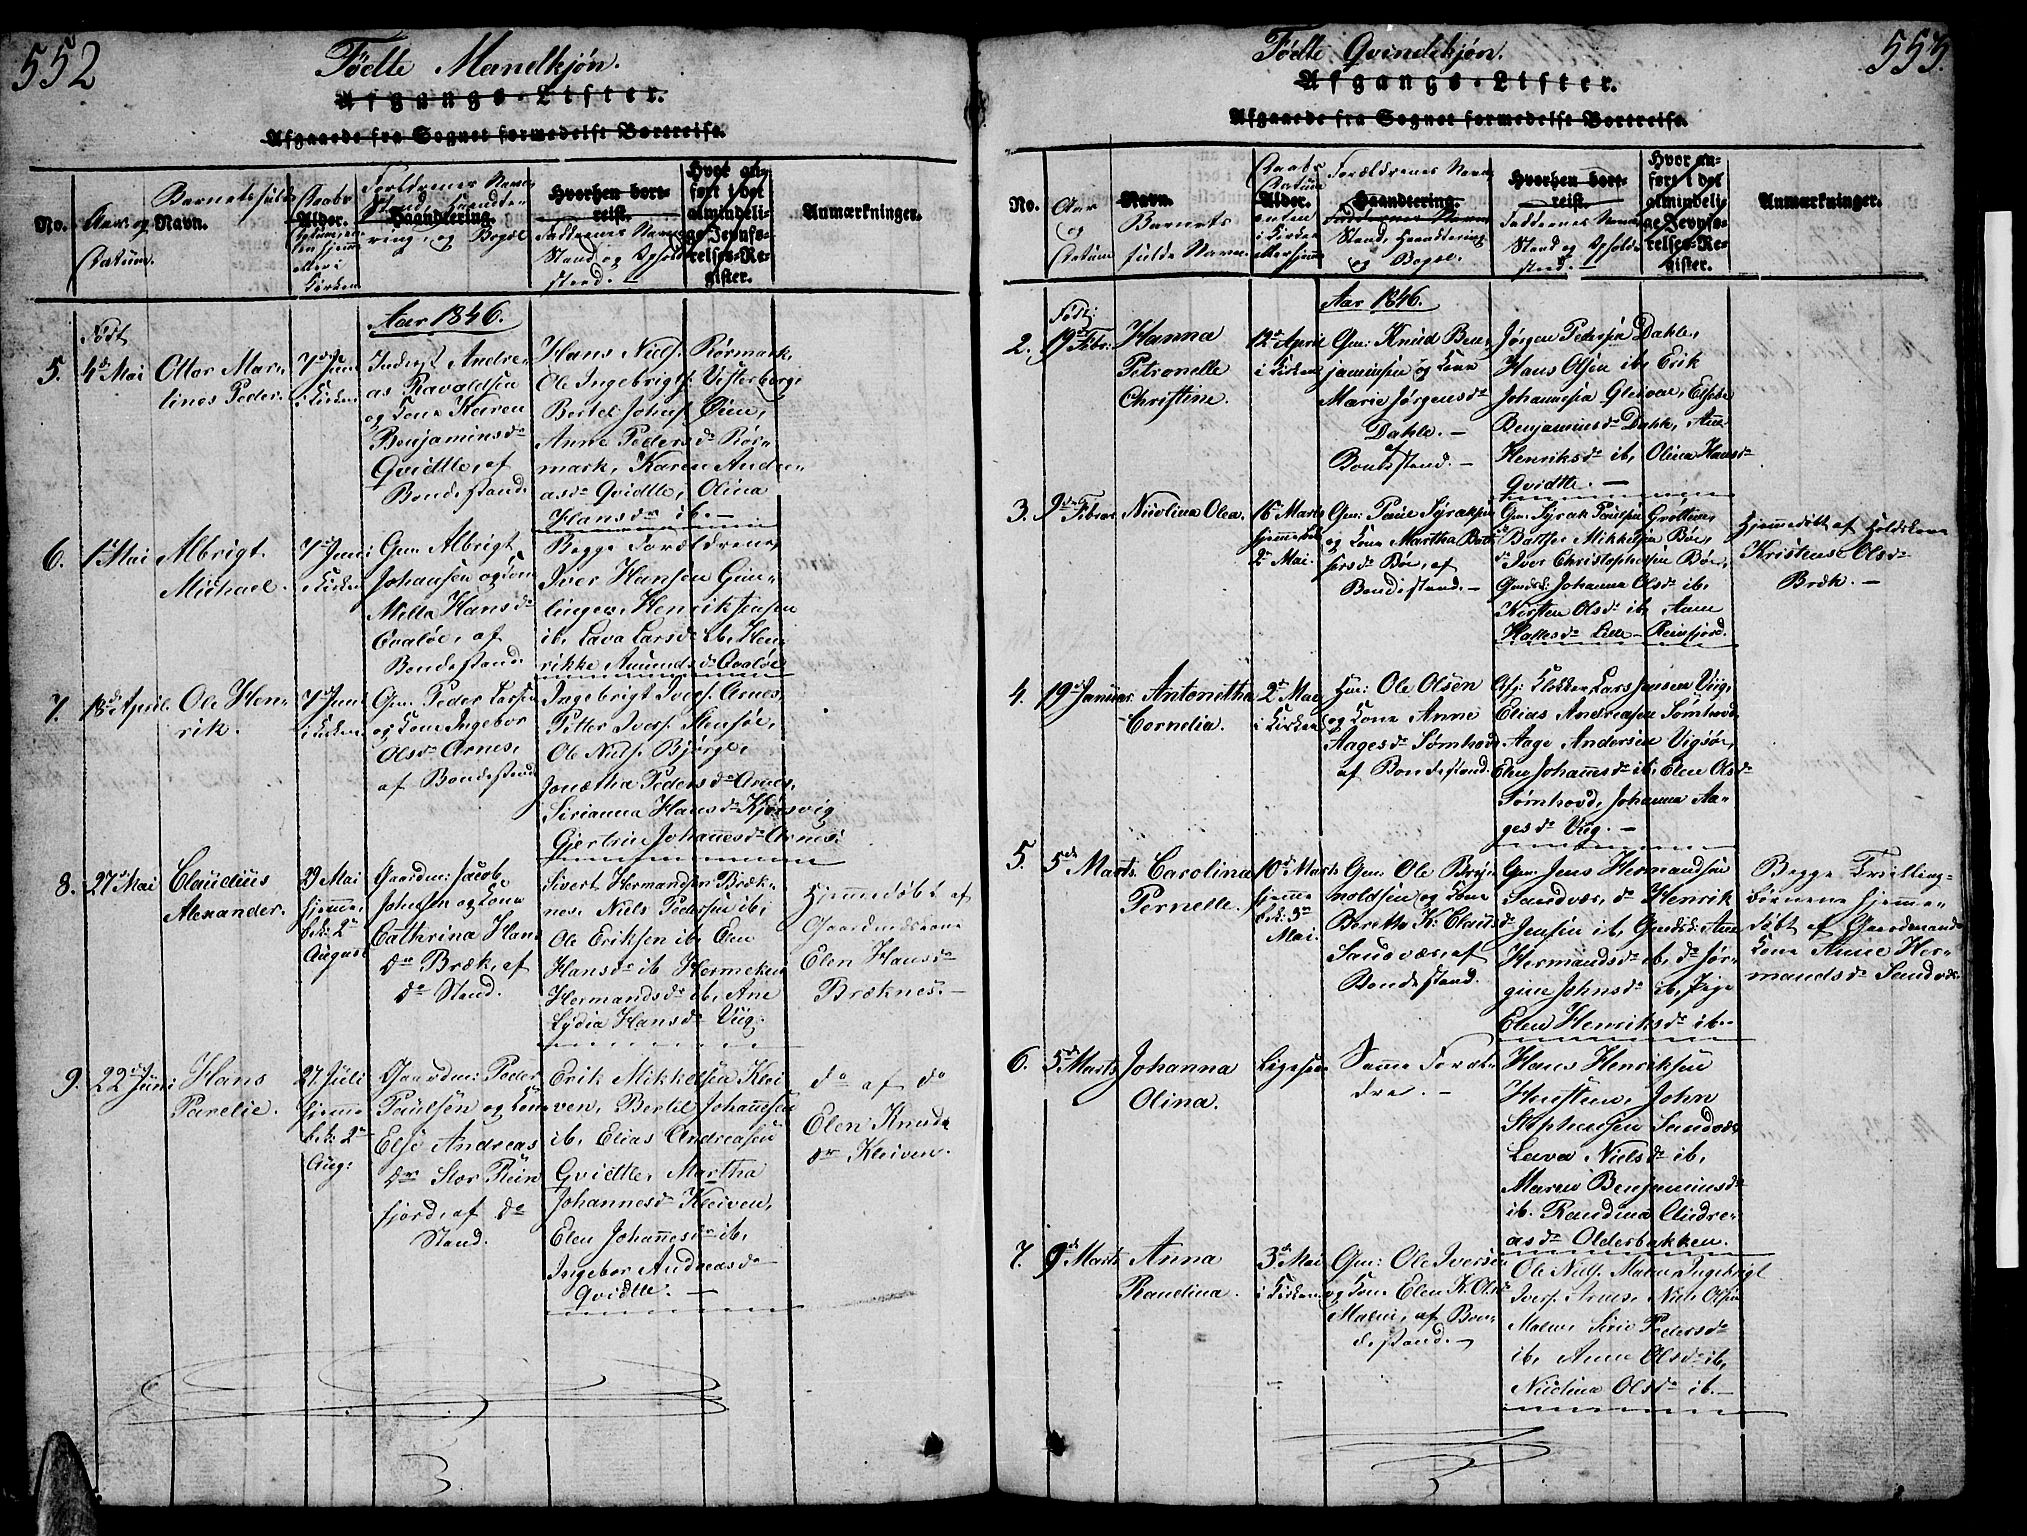 552
Födte Mandkjøn.
Afgangs-Lister.
Afgaaede fra Sognet formedelst Bortreise.
No.
Aar og Datum.
Barnets fulde
Navn.
Daabs
Alder.
Datum, en-
ten hjemme
eller i
Kirken
Forældrenes Navn,
Stand, Haandte-
Haandtering.
ring, og Bopæl
Hvorhen bort-
reist.
Faddrenes Navn,
Stand og Opholds
sted.
Hvor an-
ført i det
almindeli-
ge Jevnfø-
relses-Re-
gister.
Anmærkninger.
Aar 1846.
Född
5.
4de Mai
Ottar Mar-
linos Peder.
7de Juni
i Kirken
Inderst Andre-
as Ravaldsen
og Kone Karen
Benjaminsdr
Qvidtle, af
Bondestand.
Hans Nielsn Rörmark,
Ole Ingebrigts. Vesterberge
Bertel Johns. Öien,
Anne Pedersdr Rör-
mark, Karen Andre-
asdr Qvidtle, Olina
Hansdr ib.
6.
1ste Mai
Albrigt
Michael.
7de Juni
i Kirken
Gm. Albrigt
Johansen og Kone
Mette Hansdr
Qvaløe, af
Bondestand.
Begge Forældrene,
Iver Hansen Gim-
linger, Henrik Jensen
ib, Lava Larsdr ib, Hen-
rikke Amundsdr Qvaløe
7.
18de April.
Ole Hen-
rik.
7de Juni
i Kirken
Gm. Peder Larsen
og Kone Ingebor
Olsdr Arnes,
af Bondestand
Ingebrigt Ivers. Arnes,
Petter Ivers. Steensöe,
Ole Niels. Bjørge,
Jonetha Pedersdr Arnes,
Sirianna Hansdr Kjørsvig
Gjertrin Johannesdr Arnes.
8.
27de Mai
Claudius
Alexander.
29 Mai
hjemme.
bek: 2de
August
Gaardm: Jacob
Johnsen og Kone
Cathrina Hans
dr Bræk, af
do Stand.
Sivert Hermandsen Bræk-
nes, Niels Pedersen ib,
Ole Eriksen ib, Elen
Hansdr ib Hermekin
Hermandsdr ib, Ane
Lydia Hansdr Viig.
Hjemmedøbt af
Gaardmandskone
Elen Hansdr
Bræknes.
9.
22de Juni
Hans
Parelie.
27 Juli
hjemme
bek: 2de
Aug:
Gaardm: Peder
Paulsen og Kone
Else Andreas
dr Stor Rein
fjord, af do
Stand.
Erik Mikkelsen Klei
ven, Bertel Johannesen
ib, Elias Andreasen
Qvidtle, Martha
Johannesdr Kleiven,
Elen Johannesdr ib,
Ingebor Andreasdr
Qvidtle.
do af do
Elen Knuds
dr Kleiven.
553.
Födte Qvindekjøn.
Afgangs-Lister.
Afgaaede fra Sognet formedelst Bortreise.
No.
Aar
og
Datum
Navn.
Barnets
fulde Navn.
Daabs
Datum
Alder.
enten
i Kirken
eller hjemme
Forældrenes Navn,
Haandtering.
Stand, Haandtering
og Bopæl.
Hvorhen bort-
reist.
Faddrenes Navn
Stand og Opholds
sted.
Hvor an-
ført i det
almindeli-
ge Jevnfø-
relses-Re-
gister.
Anmærkninger.
Aar 1846.
Född:
2.
19de Febr:
Hanna
Petronelle
Christine.
12te April
i Kirken
Gm: Knud Ben-
jaminsen og Kone
Marie Jørgensdr
Dahle.
af
Bondestand.
Jørgen Pedersen Dahle,
Hans Olsen ib, Erik
Johannesen Gleivar, Elsebe
Benjaminsdr Dahle, Anne
Henriksdr ib, Olina Hansdr
Qvidtle.
3.
9de Febr.
Nicolina Olea.
15 Marts
hjemme bek
2de Mai.
Gm: Paul Syraksen
og Kone Martha Balt-
sersdr Bøe, af
Bondestand.
Gm: Syrak Paulsen Grottene,
do Baltser Mikkelsen Bøe,
do Iver Christophersen Bøe,
Gmdsk: Johanna Olsdr ib,
Kirsten Olsdr ib, Anne
Hallesdr Lille Reinfjord.
Hjemmedøbt af Holdskone
Kristens Olsdr
Bræk.
4.
19de Januar
Antonetha
Cornelia.
2de Mai
i Kirken
Huus: Ole Olsen
og Kone Anne
Aagesdr Sømhovd
af Bondestand.
Afg: Klokker Lars Jensen Viig,
Elias Andreasen Sømhovd,
Aage Andersen Vigsøe,
Else Johannesdr ib, Elen Olsdr
Sømhovd, Johanna Aa-
gesdr Viig.
5.
5de Marts
Carolina
Pernelle.
10de Marts
hjemme
bek: 3de
Mai.
Gm: Ole Bryn-
holdsen og Kone
Beretha K. Clausdr
Sandvær, af
Bondestand.
Gm: Jens Hermandsen
Sandvær, do Henrik
Jensen ib, Gmdsk: Ane
Hermandsdr ib, do Jør-
gine Johnsdr ib, Pige
Elen Henriksdr ib.
Begge Tvilling-
børnene hjemme-
døbt af Gaardmands
Kone Anne Her-
mandsdr Sandvær.
6.
5de Marts
Johanna
Olina.
Ligesaa
Samme Foræl-
dre.
Hans Henriksen
Heustuen, John
Stephensen Sandvær,
Lava Nielsdr ib,
Maren Benjaminsdr
ib. Randina Andre-
asdr Olderbakken.
7.
9de Marts
Anna
Randina.
3de Mai
i Kirken
Gm: Ole Iversen
og Kone Elen K. Olsdr
Malnes, af Bon-
destand.
Ole Niels. Malnes Ingebrigt
Ivers. Arnes, Niels Olsen
Malnes Sirie Pedersdr
ib, Anne Olsdr ib,
Nicolina Olsdr ib.